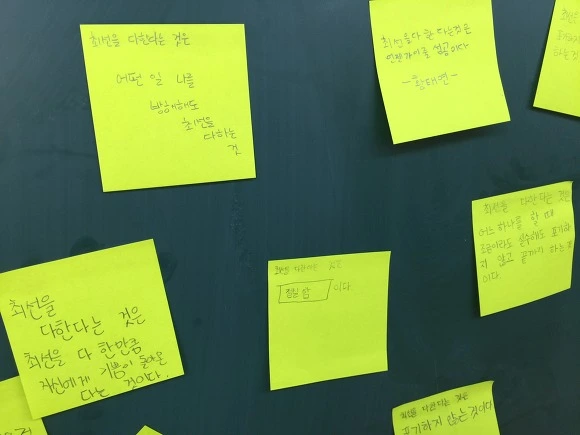 최선을 다한다는 것은
어떤 일 나를
방해해도
최선을
다하는
것
최선을 다 한 다는것은
언젠가이룰 성공이다
-황태현-
최선을 다한다는 것은
어느 하나를 할 때
조금이라도 실수해도 포기하
지 않고 끝까지 하는 것
이다
최선을
다한다는 것은
최선을 다 한만큼
자신에게 기쁨이 돌아온
다는 것이다.
최선을 다한다는 것은
이다
최선을 다한다는 것은
포기하지 않는것이다